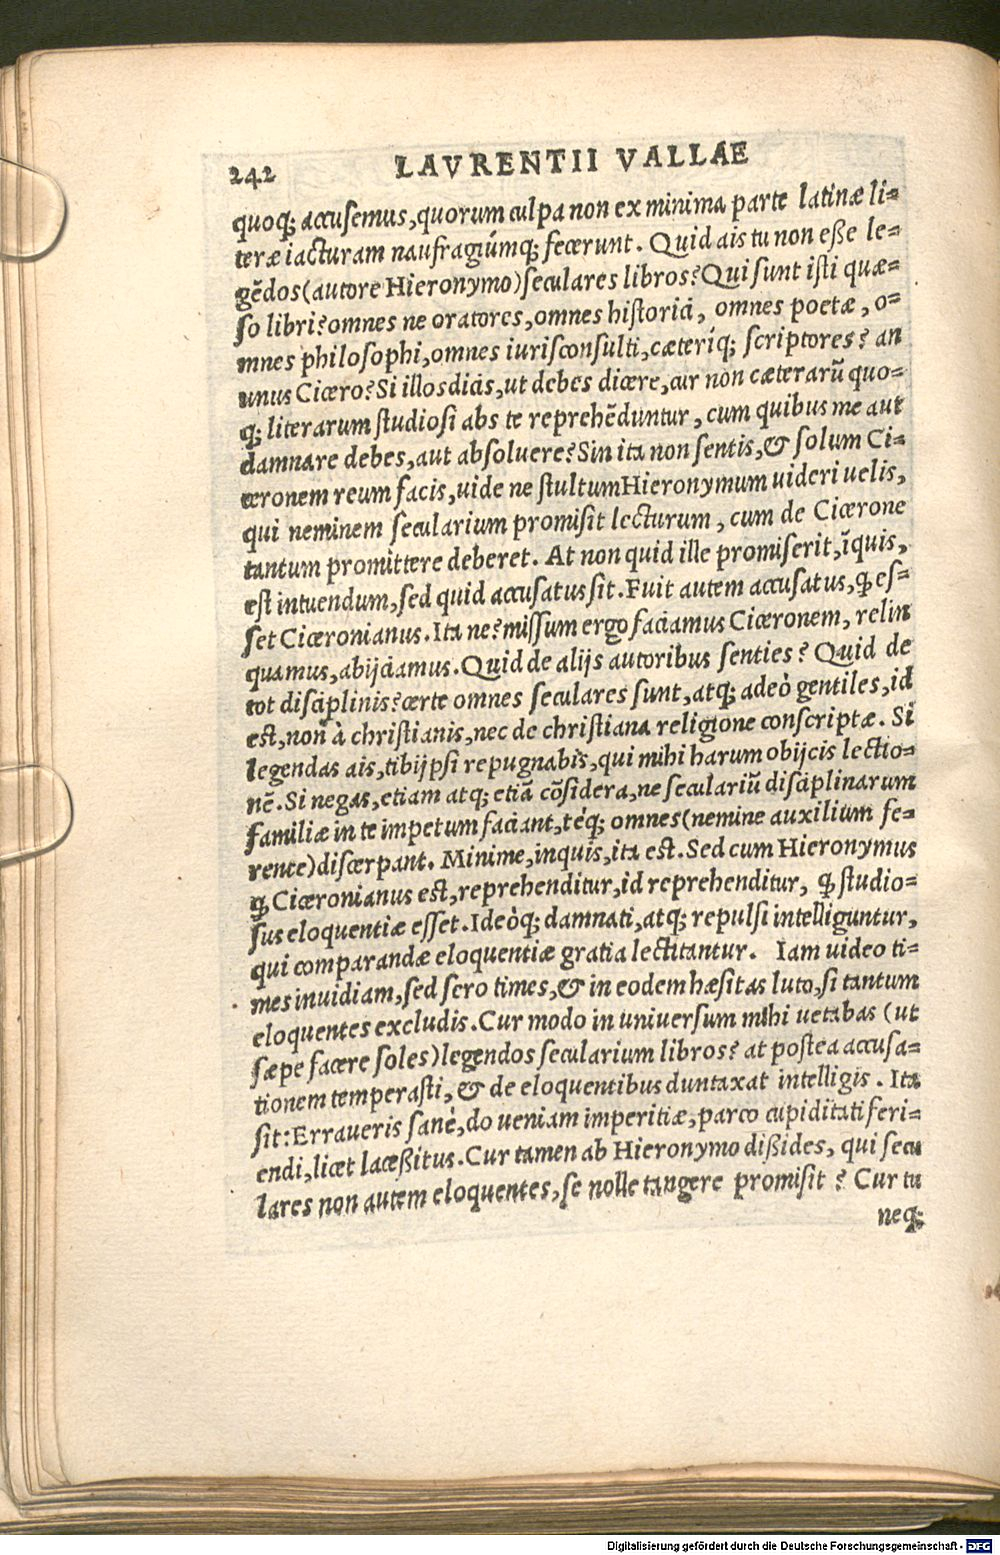 242 LAVRENTII VALLAE
quoq; accusemus, quorum culpa non ex minima parte latinæ li-
teræ iacturam naufragiúmq; fecerunt. Quid ais tu non eße le-
gẽdos (autore Hieronymo) seculares libros? Qui sunt isti quæ-
so libri? omnes ne oratores, omnes historici, omnes poetæ, o-
mnes philosophi, omnes iurisconsulti, cæteríq; scriptores? an
unus Cicero? Si illos dicis, ut debes dicere, cur non cæterarũ quo-
q; literarum studiosi abs te reprehẽduntur, cum quibus me aut
damnare debes, aut absoluere? Sin ita non sentis, & solum Ci-
ceronem reum facis, uide ne stultum Hieronymum uideri uelis,
qui neminem secularium promisit lecturum, cum de Cicerone
tantum promittere deberet. At non quid ille promiserit, ĩquis,
est intuendum, sed quid accusatus sit. Fuit autem accusatus, ꝙ es-
set Ciceronianus. Ita ne? missum ergo faciamus Ciceronem, relin
quamus, abijciamus. Quid de alijs autoribus senties? Quid de
tot disciplinis? certe omnes seculares sunt, atq; adeò gentiles, id
est, non à christianis, nec de christiana religione conscriptæ. Si
legendas ais, tibijpsi repugnabis, qui mihi harum obijcis lectio-
nẽ. Si negas, etiam atq; etiã cõsidera, ne seculariũ disciplinarum
familiæ in te impetum faciant, téq; omnes (nemine auxilium fe-
rente) discerpant. Minime, inquis, ita est. Sed cum Hieronymus
ꝙ Ciceronianus est, reprehenditur, id reprehenditur, ꝙ studio-
sus eloquentiæ esset. Ideòq; damnati, atq; repulsi intelliguntur,
qui comparandæ eloquentiæ gratia lectitantur. Iam uideo ti-
mes inuidiam, sed sero times, & in eodem hæsitas luto, si tantum
eloquentes excludis. Cur modo in uniuersum mihi uetabas (ut
sæpe facere soles) legendos secularium libros? at postea accusa-
tionem temperasti, & de eloquentibus duntaxat intelligis. Ita
sit: Erraueris sanè, do ueniam imperitiæ, parco cupiditati feri-
endi, licet laceßitus. Cur tamen ab Hieronymo dißides, qui secu
lares non autem eloquentes, se nolle tangere promisit? Cur tu
neq;
Digitalisierung gefördert durch die Deutsche Forschungsgemeinschaft - DFG